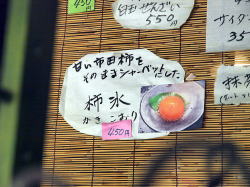 450円
白玉ぜんざい
550円
サイダ
35
甘い市田柿を
そのままシャーベットにした
柿氷
かきこおり
450円
抹茶